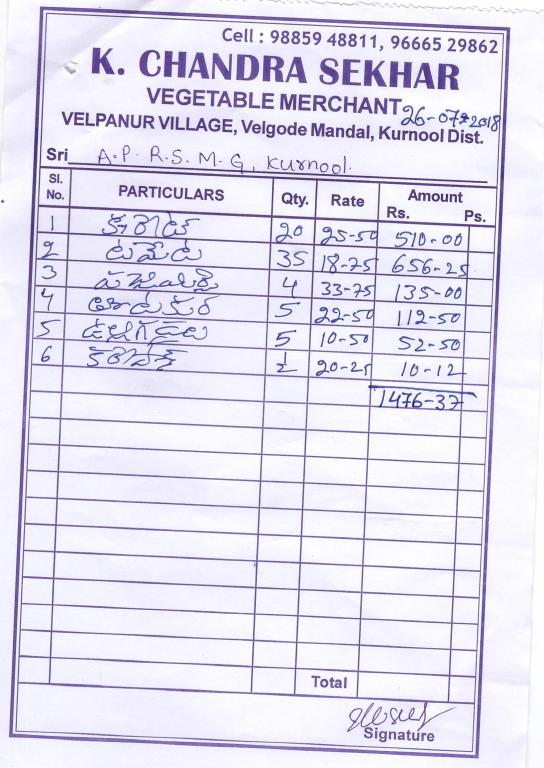 Cell : 98859 48811, 96665 29862
K. CHANDRA SEKHAR
VEGETABLE MERCHANT 26-07-2018
VELPANUR VILLAGE, Velgode Mandal, Kurnool Dist.
Sri A.P. R.S. M. G, Kurnool.
Sl. No. PARTICULARS Qty. Rate Amount Rs. Ps.
1 20 25-50 510-00
2 టమేట 35 18-75 656-25
3 4 33-75 135-00
4 5 22-50 112-50
5 5 10-50 52-50
6 ½ 20-25 10-12
1476-37
Total
Signature